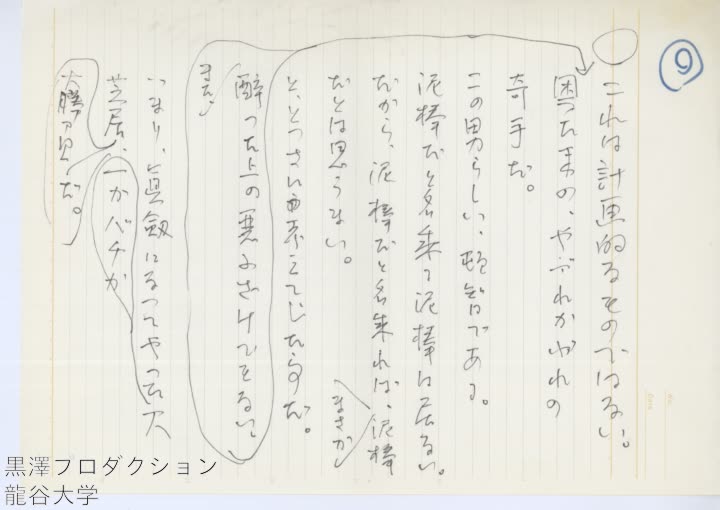 ⑨
これは計画的なものではない。
困ったまゝの、やぶれかぶれの
奇手だ。
この男らしい、頓智である。
泥棒だと名乗る泥棒は居ない。
だから、泥棒だと名乗れば、泥棒
まさか
だとは思うまい。
と、とっさに
酔った上の悪ふざけでもない、
また、
つまり、真剣になってやった大
芝居、一かバチか
大勝負だ。
黒澤プロダクション
龍谷大学